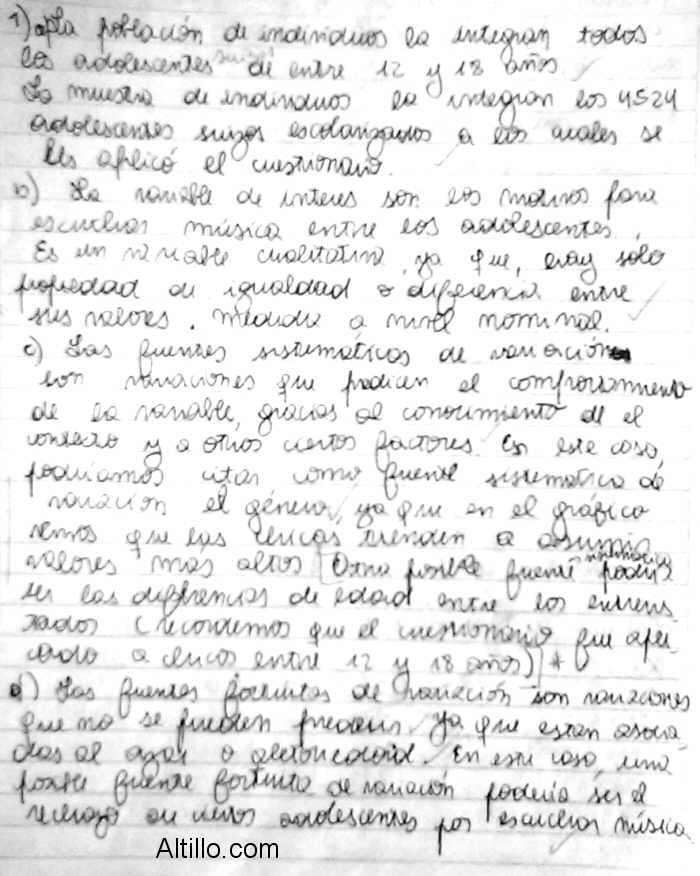 1) a) La población de individuos la integran todos
los adolescentes suizos de entre 12 y 18 años.
La muestra de individuos la integran los 4524
adolescentes suizos escolarizados a los cuales se
les aplicó el cuestionario.
b) La variable de interes son los motivos para
escuchar música entre los adolescentes.
Es un variable cualitativa, ya que, hay solo
propiedad de igualdad o diferencia entre
sus valores. medida a nivel nominal.
c) Las fuentes sistemáticas de variación
son variaciones que predicen el comportamiento
de la variable, gracias al conocimiento de el
contexto y a otros ciertos factores. En este caso,
podríamos citar como fuente sistemática de
variación el género, ya que en el gráfico
vemos que las chicas tienden a asumir
valores más altos. (Otra posible fuente sistemática podría
ser las diferencias de edad entre los entrevis-
tados (recordemos que el cuestionario fue apli-
cado a chicos entre 12 y 18 años)) *
d) Las fuentes fortuitas de variación son variaciones
que no se pueden predecir, ya que estan asocia-
das al azar o aleatoriedad. En este caso, una
posible fuente fortuita de variación podría ser el
rechazo de ciertos adolescentes por escuchar música.
Altillo.com